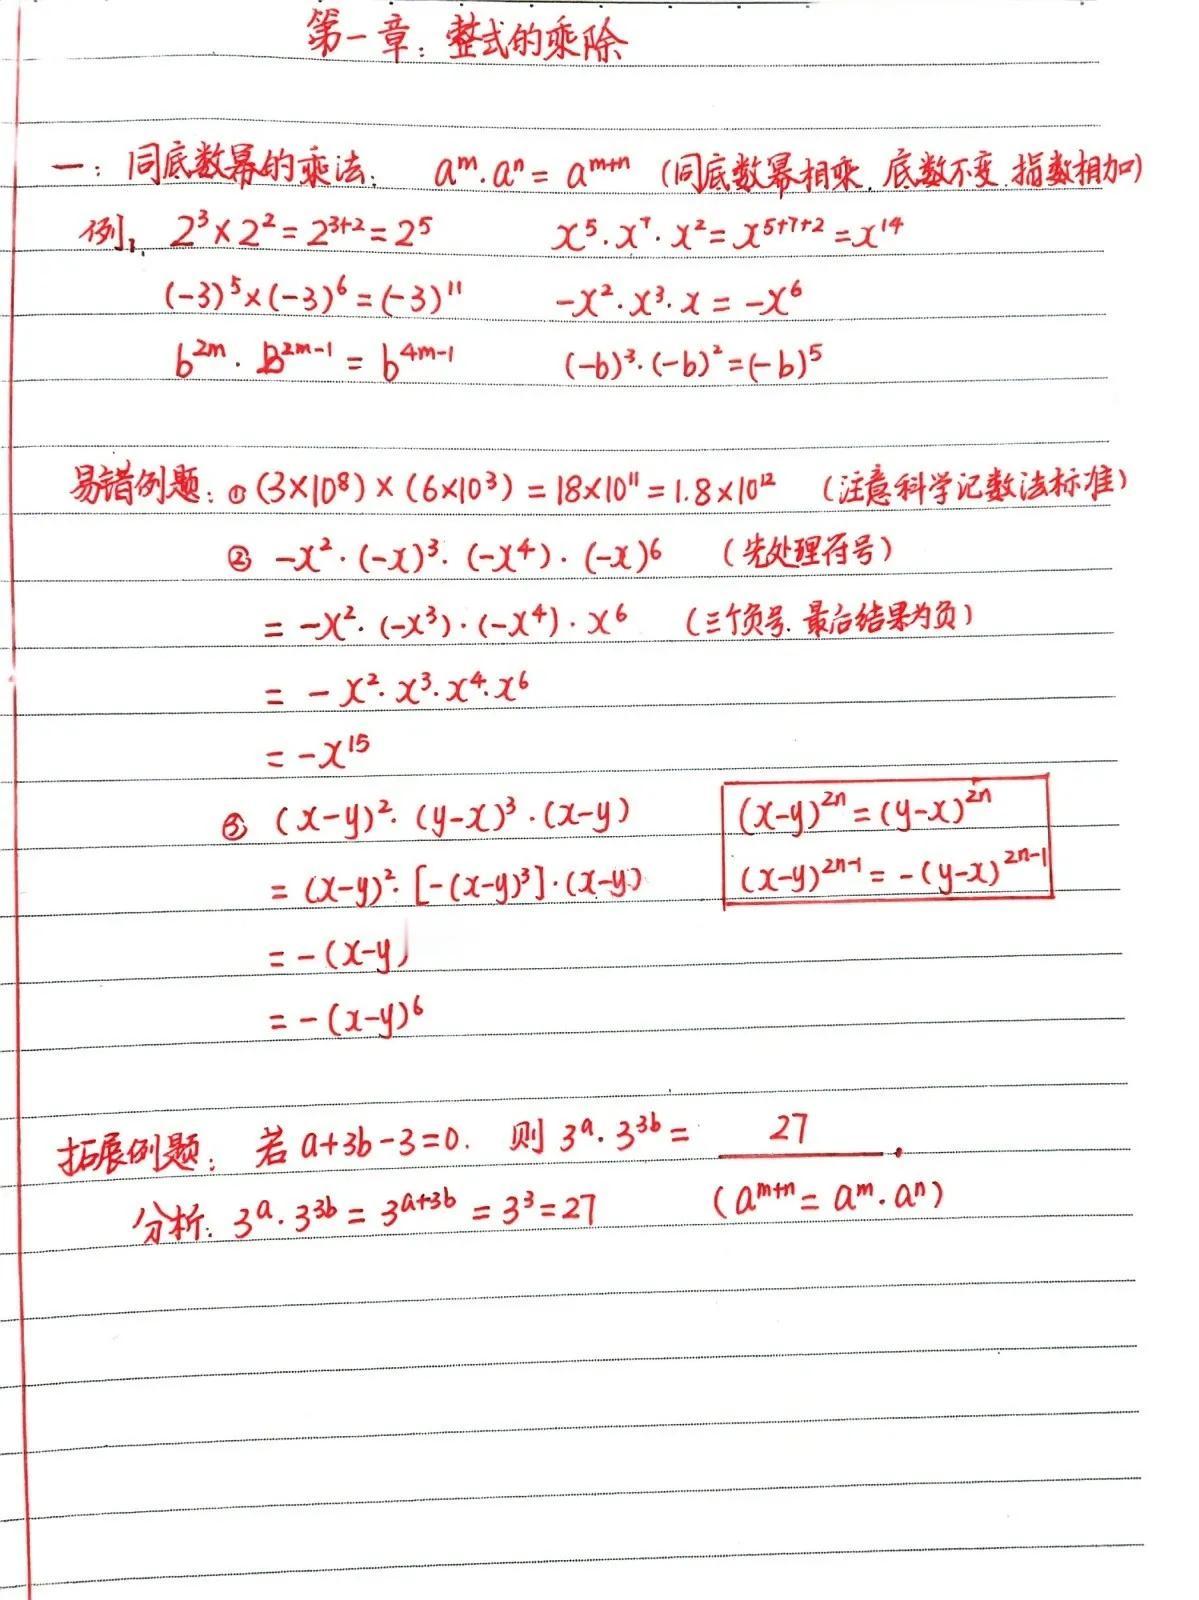 第一章：整式的乘除
一：同底数幂的乘法： aᵐ·aⁿ = aᵐ⁺ⁿ （同底数幂相乘，底数不变，指数相加）
例： 2³×2²=2³⁺²=2⁵ x⁵·x⁷·x²=x⁵⁺⁷⁺²=x¹⁴
(-3)⁵×(-3)⁶=(-3)¹¹ -x²·x³·x = -x⁶
b²ᵐ·b²ᵐ⁻¹ = b⁴ᵐ⁻¹ (-b)³·(-b)²=(-b)⁵
易错例题：① (3×10⁸)×(6×10³)=18×10¹¹=1.8×10¹² （注意科学记数法标准）
② -x²·(-x)³·(-x⁴)·(-x)⁶ （先处理符号）
= -x²·(-x³)·(-x⁴)·x⁶ （三个负号，最后结果为负）
= -x²·x³·x⁴·x⁶
= -x¹⁵
③ (x-y)²·(y-x)³·(x-y) (x-y)²ⁿ=(y-x)²ⁿ
= (x-y)²·[-(x-y)³]·(x-y) (x-y)²ⁿ⁻¹=-(y-x)²ⁿ⁻¹
= -(x-y)
= -(x-y)⁶
拓展例题： 若a+3b-3=0. 则3ᵃ·3³ᵇ= 27 .
分析：3ᵃ·3³ᵇ=3ᵃ⁺³ᵇ=3³=27 (aᵐ⁺ⁿ=aᵐ·aⁿ)